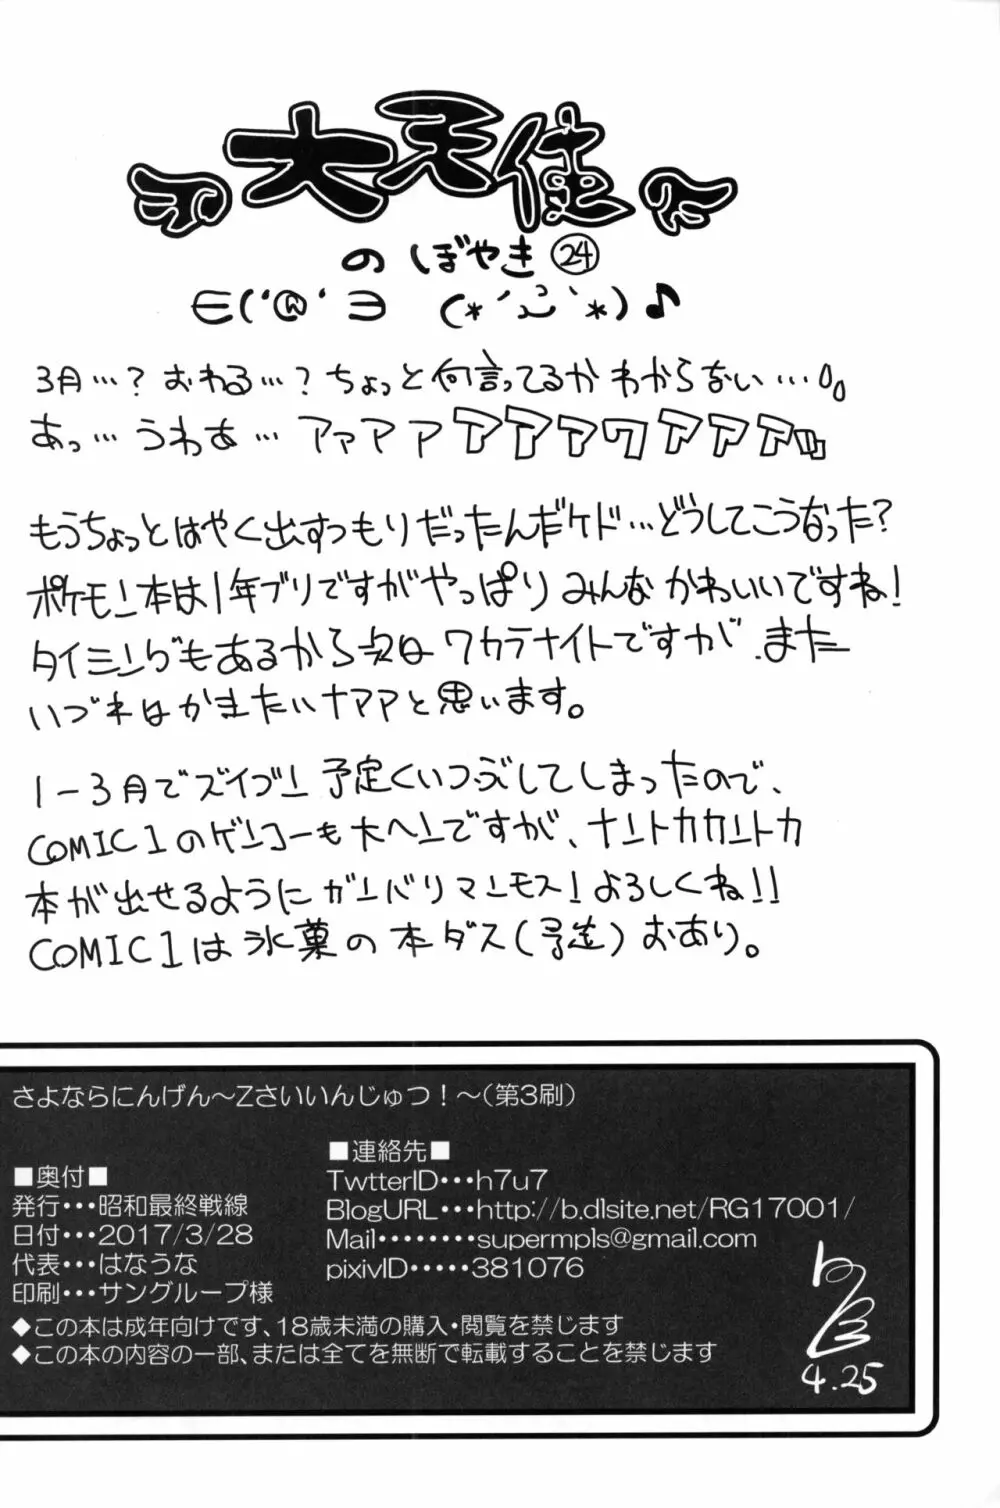 大天使
のぼやき㉔
∈('@'∋ (*´ω`*)♪
3月…?おわる…?ちょっと何言ってるかわからない…
あっ…うわあ…アァアアアアァワアアアッ
もうちょっとはやく出すつもりだったんだケド…どうしてこうなった?
ポケモン本は1年ブリですがやっぱりみんなかわいいですね!
タイミングもあるから次はワカラナイトですが、また
いづれはかきたいナァアと思います。
1-3月でズイブン予定くいつぶしてしまったので、
COMIC1のゲンコーも大ヘンですが、ナントカカントカ
本が出せるようにガンバリマンモス!よろしくね!!
COMIC1は氷菓の本ダス(予定)おあり。
さよならにんげん～Zさいいんじゅつ!～(第3刷)
■奥付■
発行・・・昭和最終戦線
日付・・・2017/3/28
代表・・・はなうな
印刷・・・サングループ様
■連絡先■
TwtterID・・・h7u7
BlogURL・・・http://b.dlsite.net/RG17001/
Mail・・・・・・・・supermpls@gmail.com
pixivID・・・・・381076
◆この本は成年向けです、18歳未満の購入・閲覧を禁じます
◆この本の内容の一部、または全てを無断で転載することを禁じます
4.25